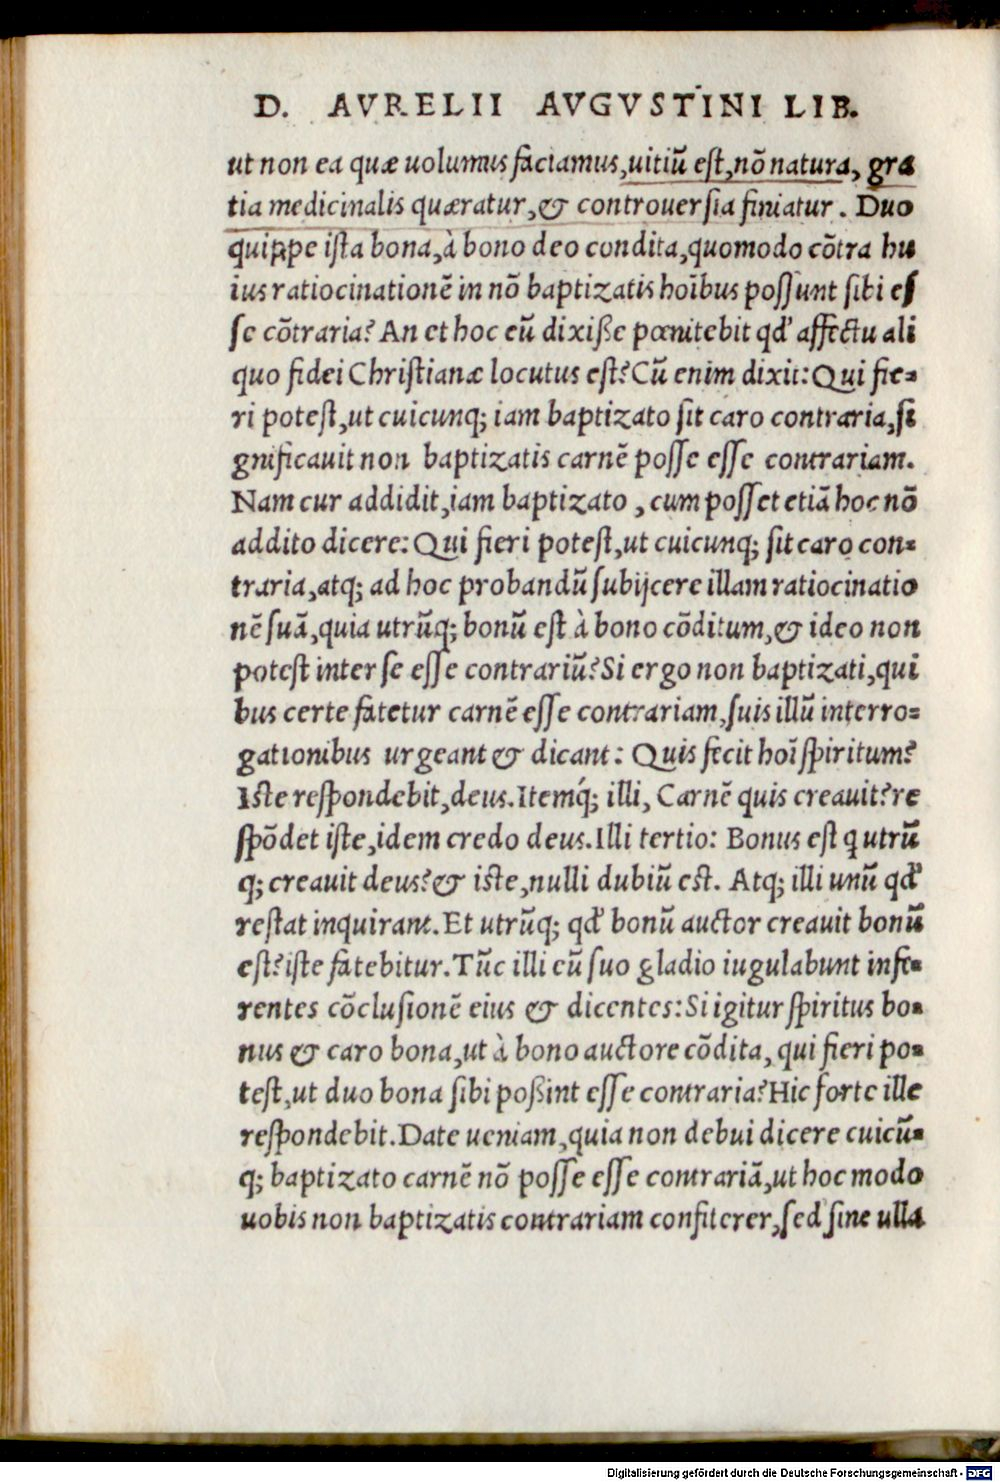 D. AVRELII AVGVSTINI LIB.
ut non ea quæ uolumus faciamus,uitiũ est,nõ natura, gra
tia medicinalis quæratur,& controuersia finiatur. Duo
quippe ista bona,à bono deo condita,quomodo cõtra hu
ius ratiocinationẽ in nõ baptizatis hoĩbus possunt sibi es
se cõtraria? An et hoc eũ dixiße pœnitebit qđ affectu ali
quo fidei Christianæ locutus est? Cũ enim dixit: Qui fie-
ri potest,ut cuicunq; iam baptizato sit caro contraria,si
gnificauit non baptizatis carnẽ posse esse contrariam.
Nam cur addidit,iam baptizato , cum posset etiã hoc nõ
addito dicere: Qui fieri potest,ut cuicunq; sit caro con-
traria,atq; ad hoc probandũ subijcere illam ratiocinatio
nẽ suã,quia utrũq; bonũ est à bono cõditum,& ideo non
potest inter se esse contrariũ? Si ergo non baptizati,qui
bus certe fatetur carnẽ esse contrariam,suis illũ interro-
gationibus urgeant & dicant: Quis fecit hoĩ spiritum?
Iste respondebit,deus. Itemq́; illi, Carnẽ quis creauit? re
spõdet iste,idem credo deus. Illi tertio: Bonus est q utrũ
q; creauit deus? & iste,nulli dubiũ est. Atq; illi unũ qđ
restat inquirant. Et utrũq; qđ bonũ auctor creauit bonũ
est? iste fatebitur. Tũc illi cũ suo gladio iugulabunt infe-
rentes cõclusionẽ eius & dicentes: Si igitur spiritus bo-
nus & caro bona,ut à bono auctore cõdita, qui fieri po-
test,ut duo bona sibi poßint esse contraria? Hic forte ille
respondebit. Date ueniam,quia non debui dicere cuicũ-
q; baptizato carnẽ nõ posse esse contrariã,ut hoc modo
uobis non baptizatis contrariam confiterer,sed sine ulla
Digitalisierung gefördert durch die Deutsche Forschungsgemeinschaft - DFG